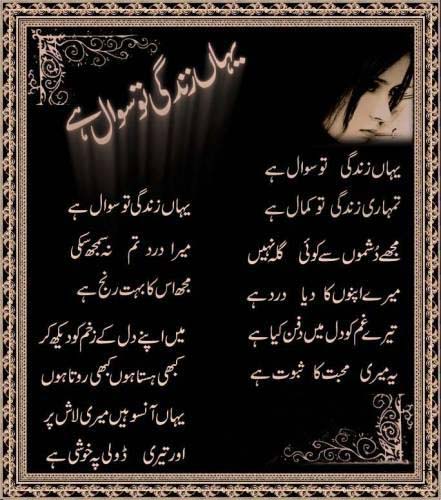 یہاں زندگی تو سوال ہے
یہاں زندگی تو سوال ہے
تمہاری زندگی تو کمال ہے
مجھے دشمنوں سے کوئی گلہ نہیں
میرے اپنوں کا دیا درد ہے
تیرے غم کو دل میں دفن کیا ہے
یہ میری محبت کا ثبوت ہے
یہاں زندگی تو سوال ہے
میرا درد تم نہ سمجھ سکی
مجھ اس کا بہت رنج ہے
میں اپنے دل کے زخم کو دیکھ کر
کبھی ہستا ہوں کبھی روتا ہوں
یہاں آنسو ہیں میری لاش پر
اور تیری ڈولی پہ خوشی ہے